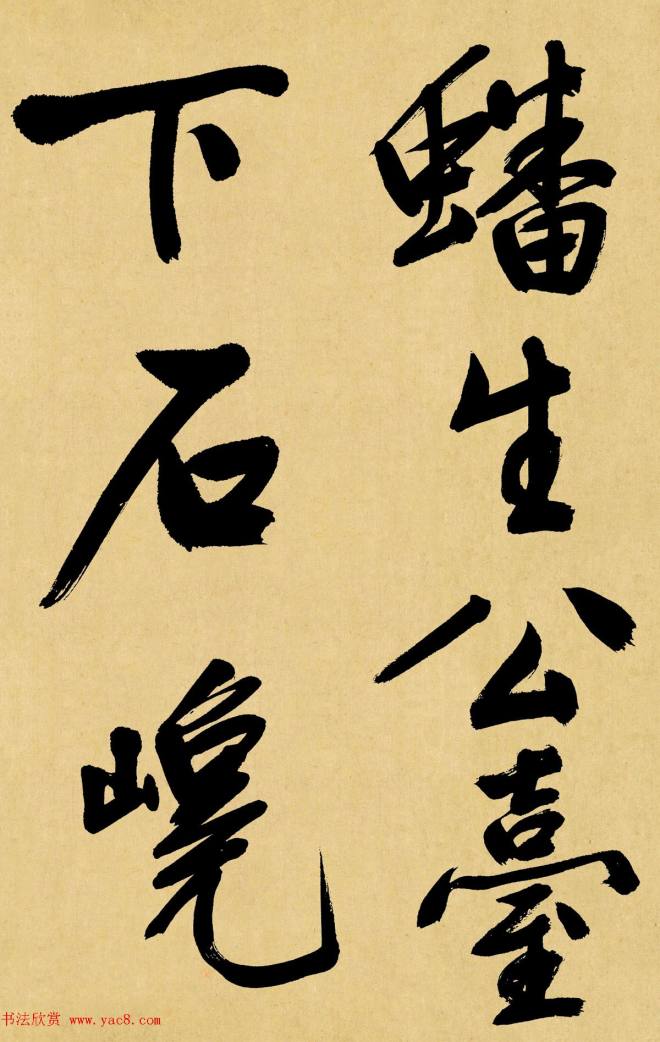 蟠生公臺
下石
书法欣赏 www.yac8.com